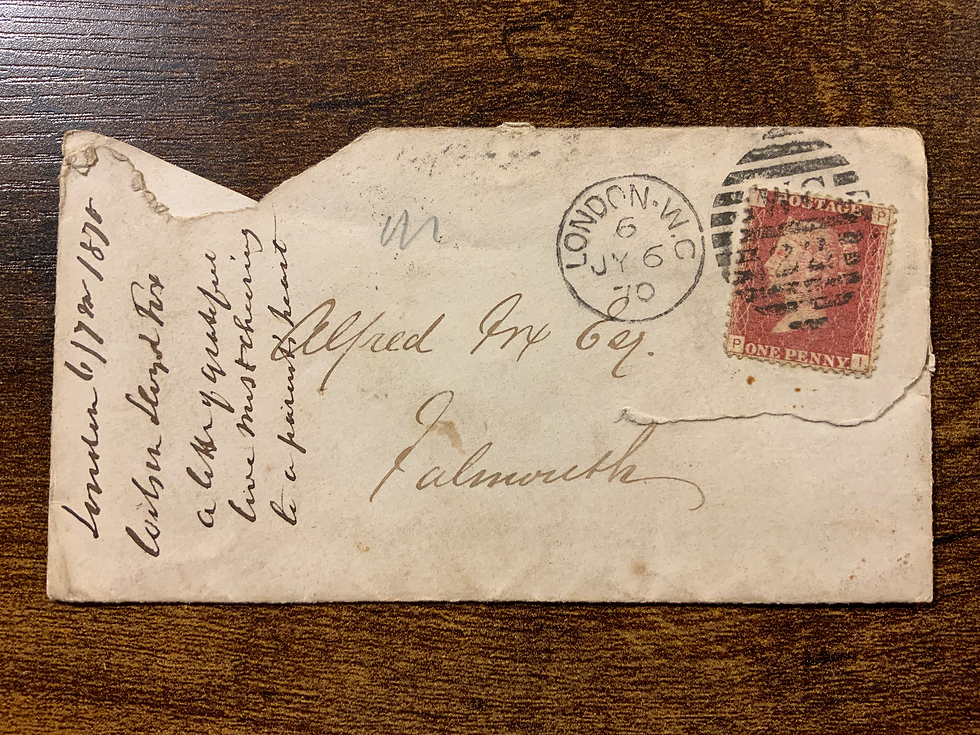 London 6/7m 1870
Wilson Lloyd Fox
a letter of grateful
love most cheering
to a parent's heart
Alfred Fox Esq.
Falmouth
LONDON·W.C
6
JY 6
70
POSTAGE P
P ONE PENNY I